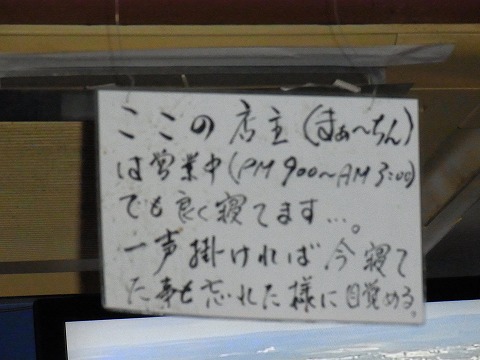 ここの店主(まぁ〜ちん)
は営業中(PM 9:00〜AM 3:00)
でも良く寝てます…。
一声掛ければ今寝て
た事も忘れた様に目覚める。